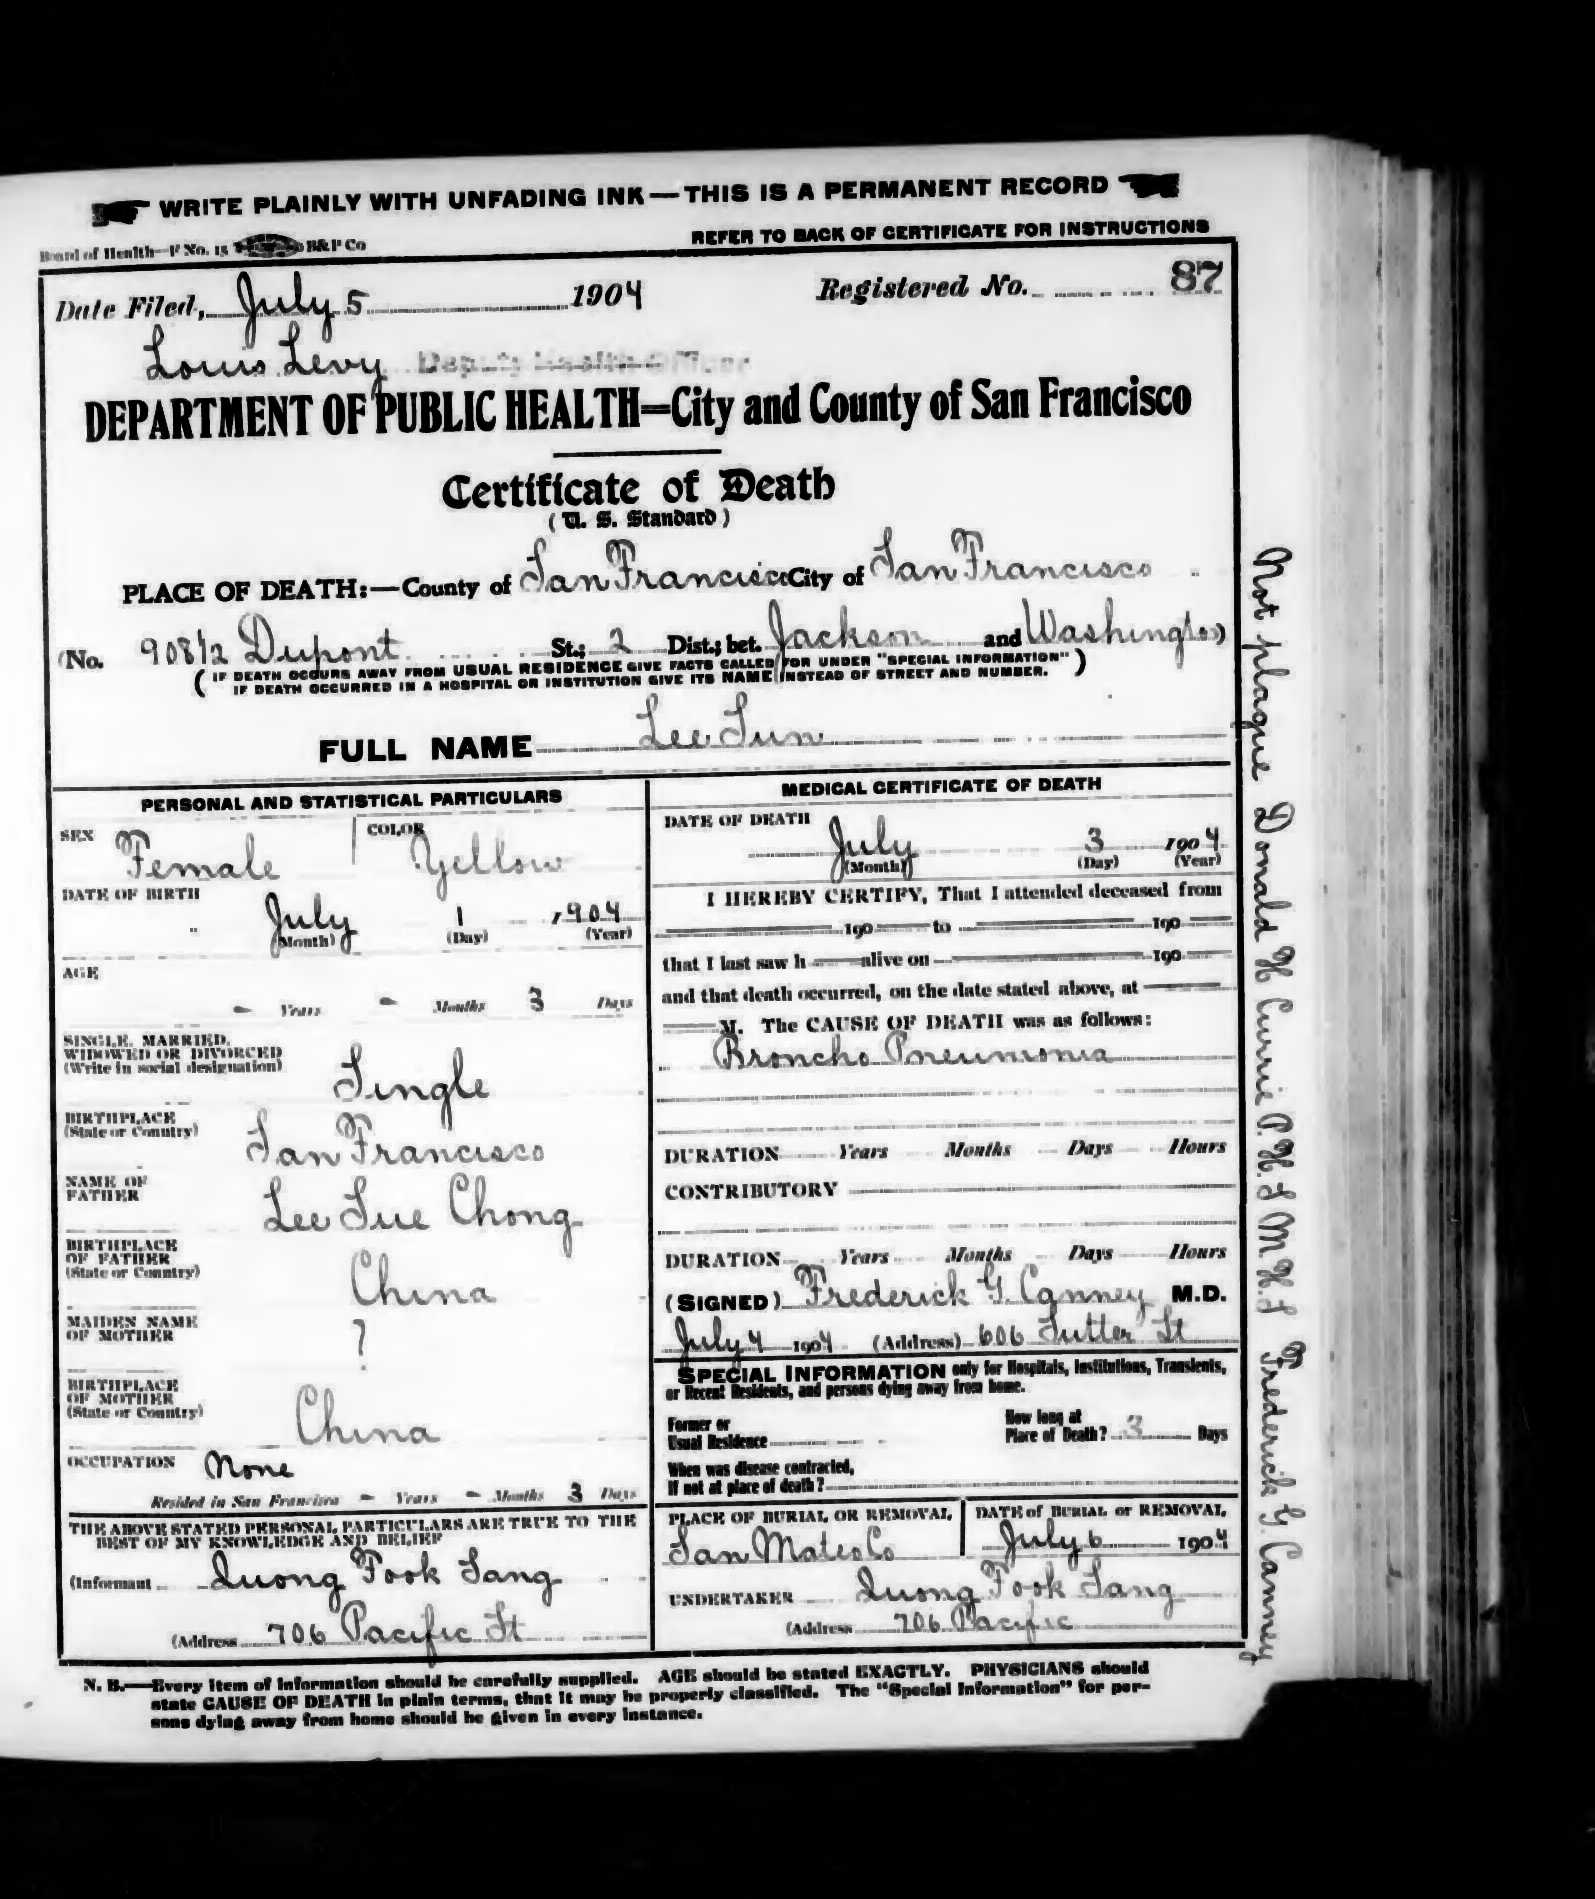 WRITE PLAINLY WITH UNFADING INK — THIS IS A PERMANENT RECORD
Board of Health—F No. 15 B&P Co
REFER TO BACK OF CERTIFICATE FOR INSTRUCTIONS
Date Filed, July 5 1904 Registered No. 87
Louis Levy Deputy Health Officer
DEPARTMENT OF PUBLIC HEALTH=City and County of San Francisco
Certificate of Death
( U. S. Standard )
PLACE OF DEATH:—County of San Francisco City of San Francisco
(No. 908 1/2 Dupont St.; 2 Dist.; bet. Jackson and Washington)
( IF DEATH OCCURS AWAY FROM USUAL RESIDENCE GIVE FACTS CALLED FOR UNDER "SPECIAL INFORMATION" )
IF DEATH OCCURRED IN A HOSPITAL OR INSTITUTION GIVE ITS NAME INSTEAD OF STREET AND NUMBER.
FULL NAME Lee Sun
PERSONAL AND STATISTICAL PARTICULARS
SEX Female COLOR Yellow
DATE OF BIRTH
July 1 1904
(Month) (Day) (Year)
AGE
- Years - Months 3 Days
SINGLE, MARRIED,
WIDOWED OR DIVORCED
(Write in social designation) Single
BIRTHPLACE
(State or Country) San Francisco
NAME OF
FATHER Lee Sue Chong
BIRTHPLACE
OF FATHER
(State or Country) China
MAIDEN NAME
OF MOTHER ?
BIRTHPLACE
OF MOTHER
(State or Country) China
OCCUPATION None
Resided in San Francisco - Years - Months 3 Days
THE ABOVE STATED PERSONAL PARTICULARS ARE TRUE TO THE
BEST OF MY KNOWLEDGE AND BELIEF
(Informant Quong Fook Sang
(Address 706 Pacific St
MEDICAL CERTIFICATE OF DEATH
DATE OF DEATH
July 3 1904
(Month) (Day) (Year)
I HEREBY CERTIFY, That I attended deceased from
190 to 190
that I last saw h alive on 190
and that death occurred, on the date stated above, at
M. The CAUSE OF DEATH was as follows:
Broncho Pneumonia
DURATION Years Months Days Hours
CONTRIBUTORY
DURATION Years Months Days Hours
(SIGNED) Frederick G. Canney M.D.
July 4 1904 (Address) 606 Sutter St
SPECIAL INFORMATION only for Hospitals, Institutions, Transients,
or Recent Residents, and persons dying away from home.
Former or
Usual Residence
How long at
Place of Death? 3 Days
When was disease contracted,
If not at place of death?
PLACE OF BURIAL OR REMOVAL
San Mateo Co
DATE of BURIAL or REMOVAL
July 6 1904
UNDERTAKER Quong Fook Sang
(Address 706 Pacific
N. B.—Every item of information should be carefully supplied. AGE should be stated EXACTLY. PHYSICIANS should
state CAUSE OF DEATH in plain terms, that it may be properly classified. The "Special Information" for per-
sons dying away from home should be given in every instance.
Not plague Donald H Currie P.H.S M.H.S Frederick G. Canney